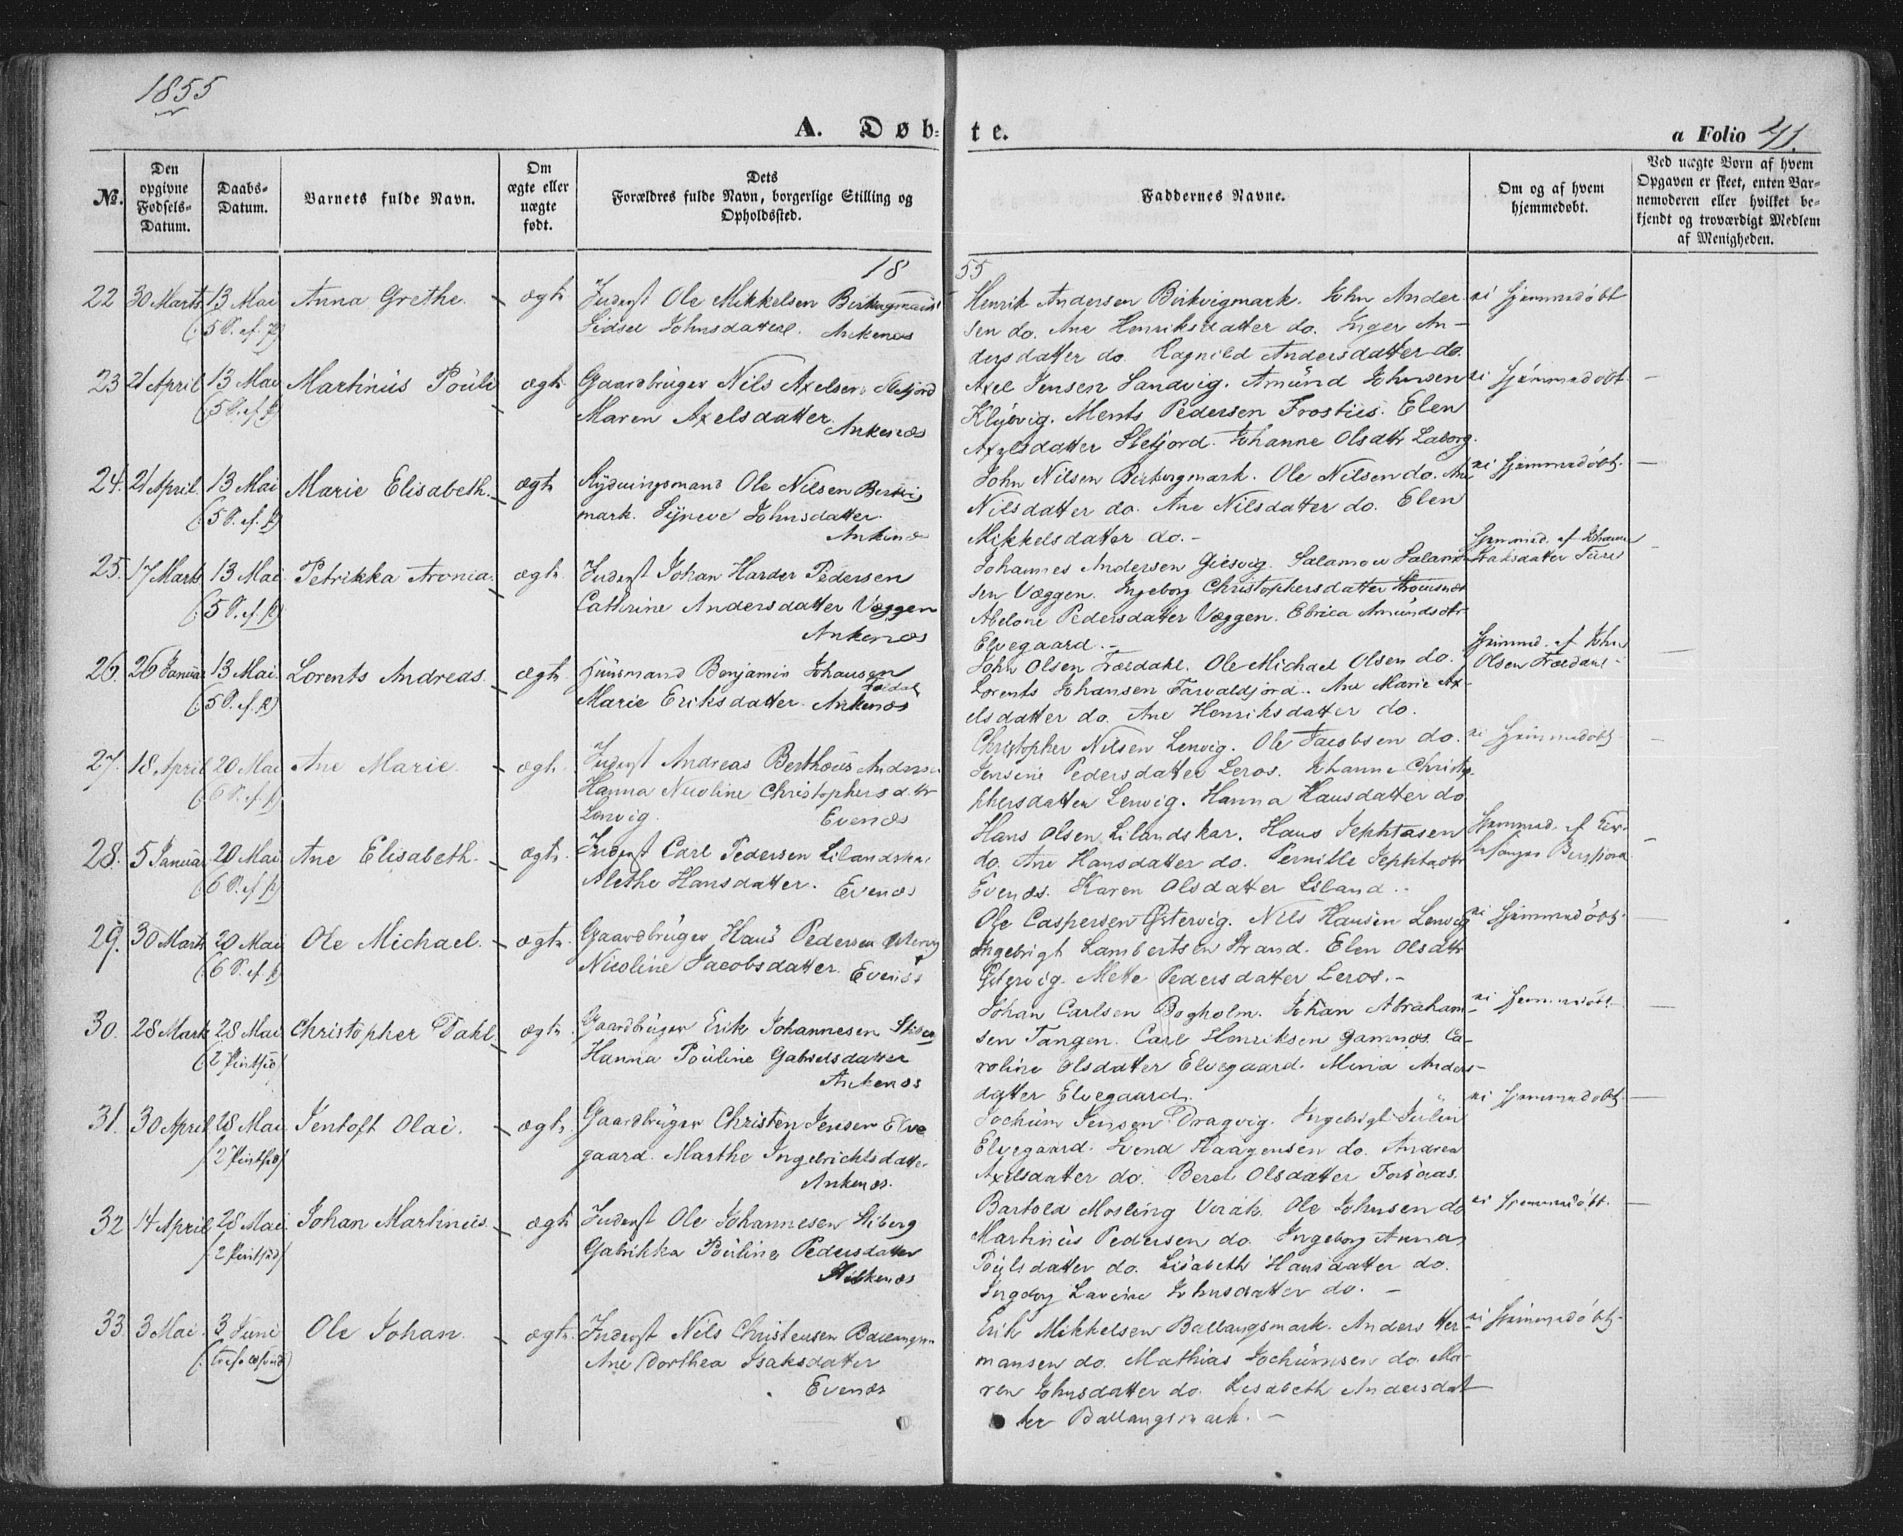 1855
A. Døb=
te.
a Folio 41.
№.
Den opgivne Fødsels-Datum.
Daabs-Datum.
Barnets fulde Navn.
Om ægte eller uægte født.
Dets Forældres fulde Navn, borgerlige Stilling og Opholdssted.
Faddernes Navne.
Om og af hvem hjemmedøbt.
Ved uægte Børn af hvem Opgaven er skeet, enten Barnemoderen eller hvilket bekjendt og troværdigt Medlem af Menigheden.
18
55
22 30 Marts 13 Mai Anna Grethe. ægte Inderst Ole Mikkelsen
(5 S. ef. p) Sidsel Johnsdatter. Ankenæs
Henrik Andersen Birkvigmark. John Ander
sen do. Ane Henriksdatter do. Inger An-
dersdatter do. Ragnild Andersdatter do.
ei hjemmedøbt
23 21 April 13 Mai Martinus Pouli ægte Gaardbruger Nils Axelsen Skefjord
(5 S. ef. p) Maren Axelsdatter. Ankenæs
Axel Jensen Sandvig. Amund Johnsen
Klubvig. Ments Pedersen Frostiis. Elen
Axelsdatter Skefjord. Johanne Olsdtr
ei hjemmedøbt.
24. 21 April 13 Mai Marie Elisabeth. ægte Rydningsmand Ole Nilsen
(5 S. ef. p) mark. Synneve Johnsdatter.
Ankenæs
John Nilsen Berkvigmark. Ole Nilsen do. Ane
Nilsdatter do. Ane Nilsdatter do. Elen
Mikkelsdatter do.-
ei hjemmedøbt.
25. 17 Marts 13 Mai Petrikka Aronia. ægte Inderst Johan Harder Pedersen
(5 S. ef. p) Cathrine Andersdatter Væggen
Ankenæs
Johannes Andersen Giesvig. Salamon Salamon
sen Væggen. Ingeborg Christophersdatter
Abelone Pedersdatter Væggen. Ebrica Amundsdtr
Elvegaard.-
hjemmed. af Johanna
Isaksdatter
26. 26 Januar 13 Mai Lorents Andreas. ægte Huusmand Benjamin Johansen
(5 S. ef. p) Marie Eriksdatter. Ankenæs
John Olsen Tverdahl. Ole Michael Olsen do.
Lorents Johansen. Ane Marie Ax-
elsdatter do. Ane Henriksdatter do.
hjemmed. af John
Olsen
27. 18 April 20 Mai Ane Marie. ægte. Inderst Andreas Berthous Anders
(6 S. ef. p) Hanna Nicoline Christophersdtr
Lenvig. Evenæs
Christopher Nilsen Lenvig. Ole Jacobsen do.
Jensine Pedersdatter Leros. Johanne Christo
phersdatter Lenvig. Hanna Hansdatter do.
ei hjemmedøbt.
28. 5 Januar 20 Mai Ane Elisabeth. ægte. Inderst Carl Pedersen Lilandskar
(6 S. ef. p) Alethe Hansdatter. Evenæs
Hans Olsen Lilandskar. Hans Jephtasen
do. Ane Hansdatter do. Pernille Jephtadtr
Evenæs. Karen Olsdatter Liland.-
hjemmed. af Kir-
kesanger
29. 30 Marts 20 Mai Ole Michael. ægte. Gaardbruger Hans Pedersen Østervig
(6 S. ef. p) Nicoline Jacobsdatter. Evenæs
Ole Caspersen Østervig. Nils Hansen Lenvig
Ingebrigt Lambertsen Strand. Elen Olsdtr
Østervig. Mete Pedersdatter Leros.-
ei hjemmedøbt.
30. 28 Marts 28 Mai Christopher Dahl. ægte. Gaardbruger Erik Johannesen Stiberg
(2 Pintsed) Hanna Pouline Gabrielsdatter
Ankenæs
Johan Carlsen Bogholm. Johan Abraham
sen Tangen. Carl Henriksen Gamnæs. Ca-
roline Olsdatter Elvegaard. Mina Anders-
datter Elvegaard.
ei hjemmedøbt.
31. 30 April 28 Mai Jentoft Olai. ægte. Gaardbruger Christen Jensen Elve
(2 Pintsed) gaard. Marthe Ingebrichtsdatter
Ankenæs.
Jochum Jensen Dragvig. Ingebrigt Julin
Elvegaard. Svend Haagensen do. Andrea
Axelsdatter do. Beret Olsdatter Forsaas.
ei hjemmedøbt.
32 14 April 28 Mai Johan Martinus. ægte Inderst Ole Johannesen Stiberg
(2 Pintsed) Gabrikka Pouline Pedersdatter
Ankenæs
Bartold Mosling Virak. Ole Johnsen do
Martinus Pedersen do. Ingeborg Anna
Poulsdatter do. Lisabeth Hansdatter do.
Ingeborg Lavine Johnsdatter do.-
ei hjemmedøbt.
33. 3 Mai. 3 Juni Ole Johan. ægte. Inderst Nils Christensen Ballangsm
Ane Dorthea Isaksdatter
Evenæs
Erik Mikkelsen Ballangsmark. Anders Her-
mansen do. Mathias Jochumsen do. Ma-
ren Johnsdatter do. Lisabeth Andersdat
ter Ballangsmark.-
ei hjemmedøbt.